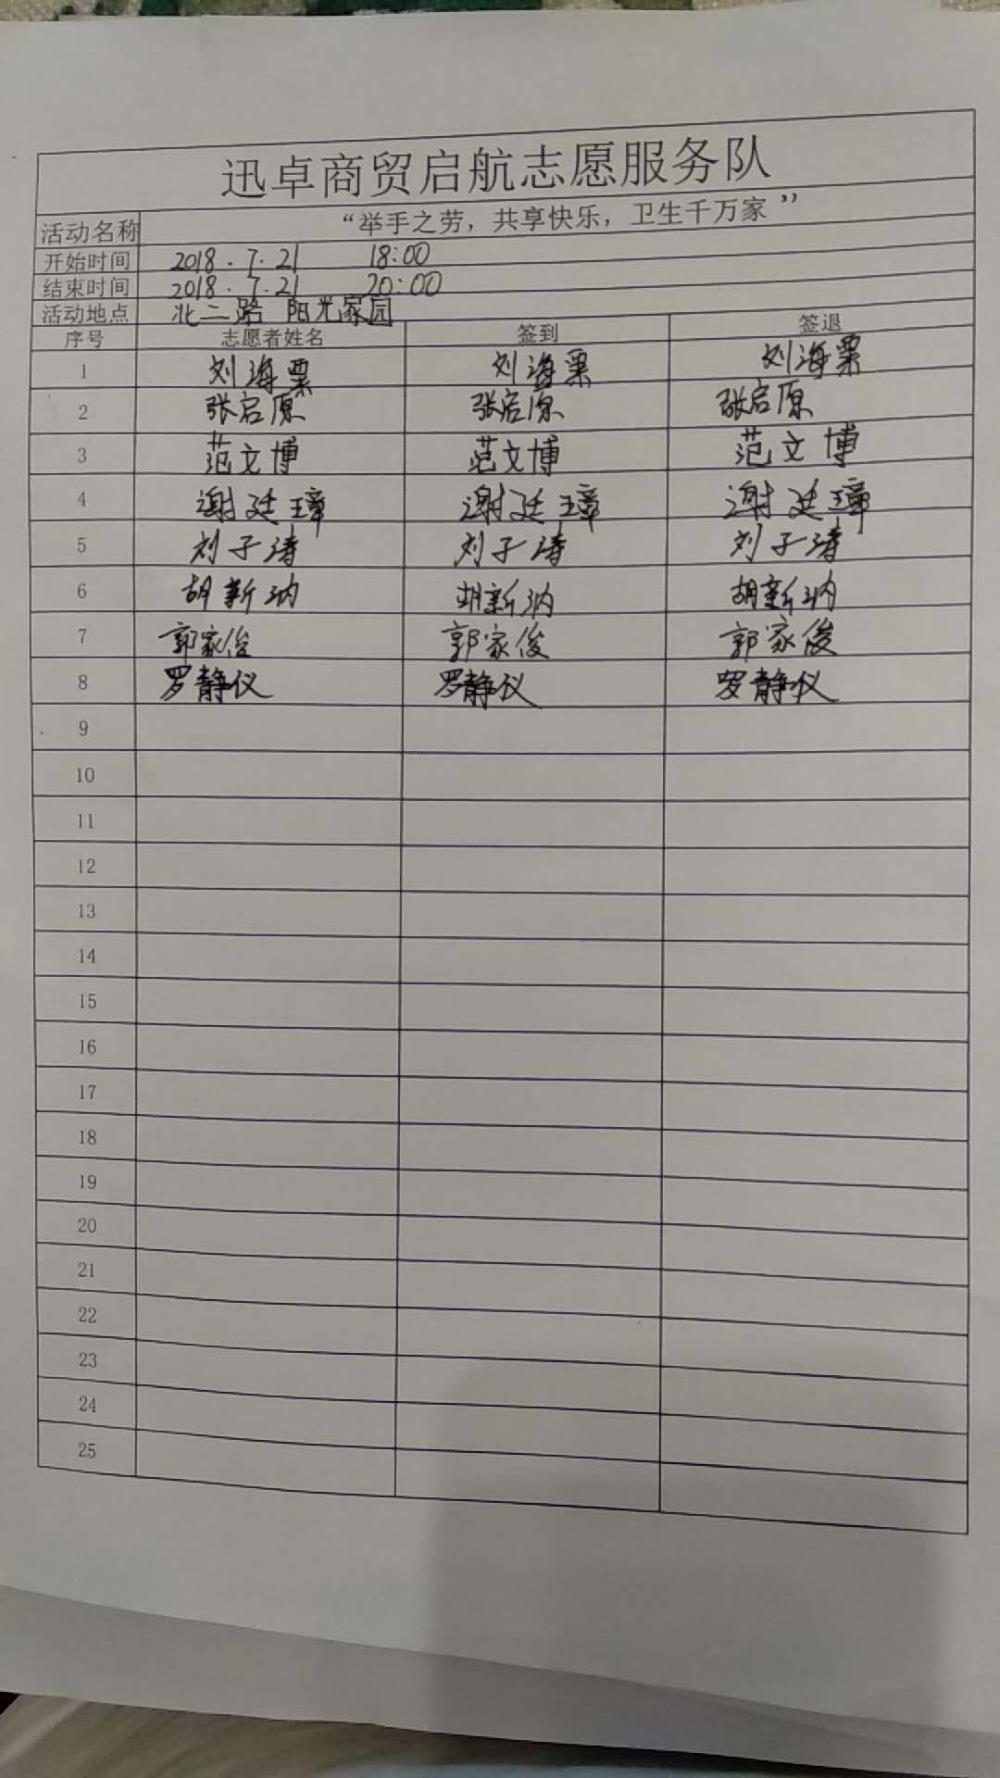 迅卓商贸启航志愿服务队
活动名称 “举手之劳，共享快乐，卫生千万家”
开始时间 2018.7.21 18:00
结束时间 2018.7.21 20:00
活动地点 北二路 阳光家园
序号 志愿者姓名 签到 签退
1 刘海粟 刘海粟 刘海粟
2 张启原 张启原 张启原
3 范文博 范文博 范文博
4 谢廷璋 谢廷璋 谢廷璋
5 刘子涛 刘子涛 刘子涛
6 胡新汭 胡新汭 胡新汭
7 郭家俊 郭家俊 郭家俊
8 罗静仪 罗静仪 罗静仪
9
10
11
12
13
14
15
16
17
18
19
20
21
22
23
24
25